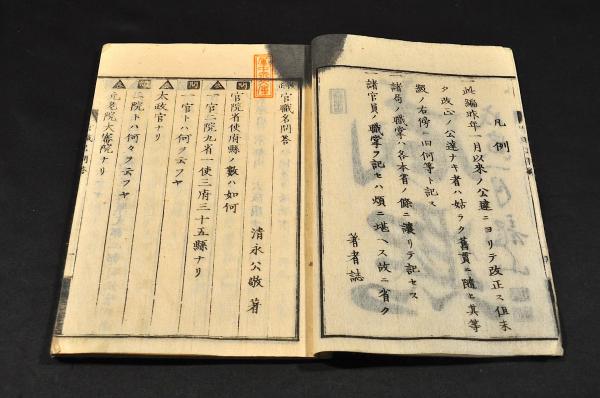 凡例
一此編昨年一月以來ノ公達ニヨリテ改正ス但未
タ改心ノ公達ナキ者ハ姑ラク舊貫ニ隨ヒ其等
級ノ右傍ニ旧何等ト記ス
一諸局ノ職掌ハ各本省ノ條ニ讓リテ記セス
一諸官員ノ職掌ヲ記セハ煩ニ堪ヘス故ニ省ク
著者誌
官職名問答
清永公敬著
問
官院省使府縣ノ數ハ如何
答
一官二院九省一使三府三十五縣ナリ
問
一官トハ何ヲ云フヤ
答
太政官ナリ
問
二院トハ何々ヲ云フヤ
答
元老院大審院ナリ